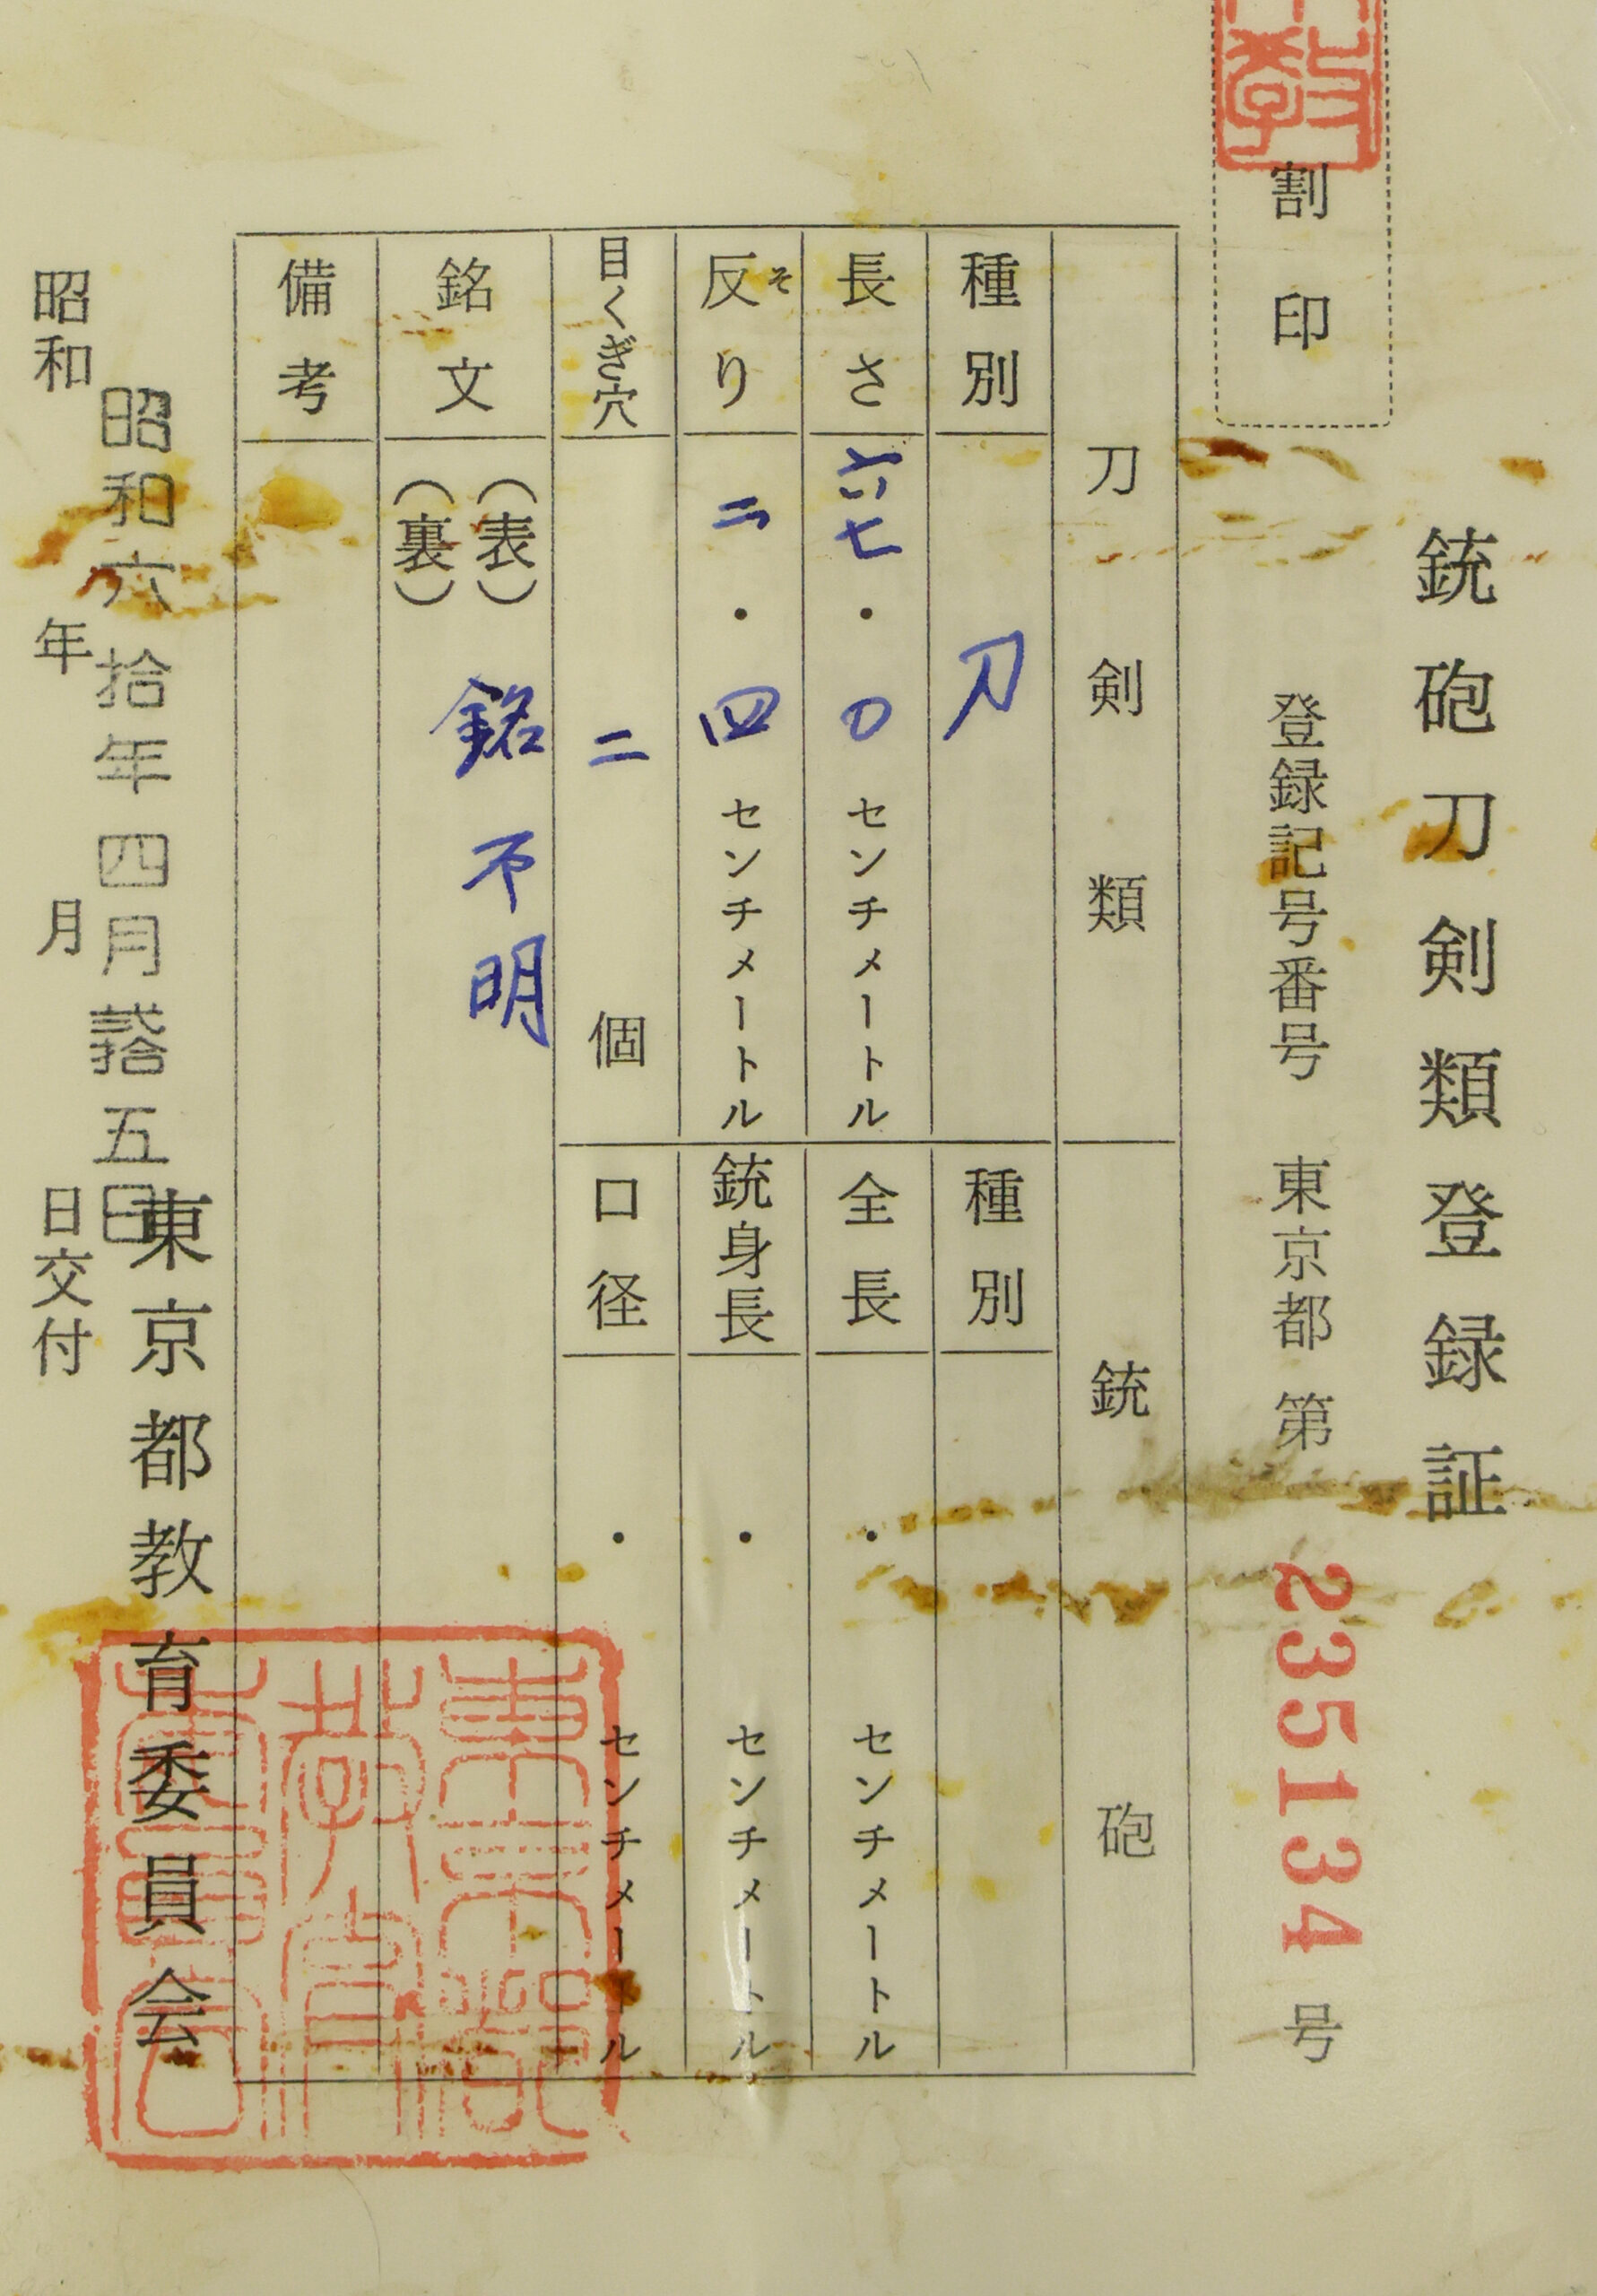 銃砲刀剣類登録証
割印
登録記号番号 東京都 第 235134 号
刀剣類
種別 刀
長さ 六七・〇センチメートル
反り そ 二・四センチメートル
目くぎ穴 二 個
銘文 (表) 銘不明
(裏)
備考
銃砲
種別
全長 ・ センチメートル
銃身長 ・ センチメートル
口径 ・ センチメートル
東京都教育委員会
昭和六拾年四月弐拾五日
昭和 年 月 日交付